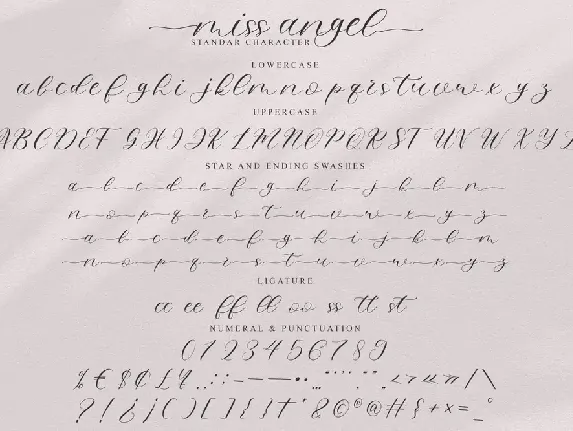 miss angel
STANDAR CHARACTER
LOWERCASE
a b c d e f g h i j k l m n o p q r s t u v w x y z
UPPERCASE
A B C D E F G H I J K L M N O P Q R S T U V W X Y Z
STAR AND ENDING SWASHES
a b c d e f g h i j k l m
n o p q r s t u v w x y z
a b c d e f g h i j k l m
n o p q r s t u v w x y z
LIGATURE
cc ee ff ll oo ss tt st
NUMERAL & PUNCTUATION
0 1 2 3 4 5 6 7 8 9
% € $ ¢ £ ¥ . , : ; - – — • · … " ' " " ‹ › « » / \
? ! ¿ ¡ ( ) [ ] { } † ' & © ® @ # { + x = _ °